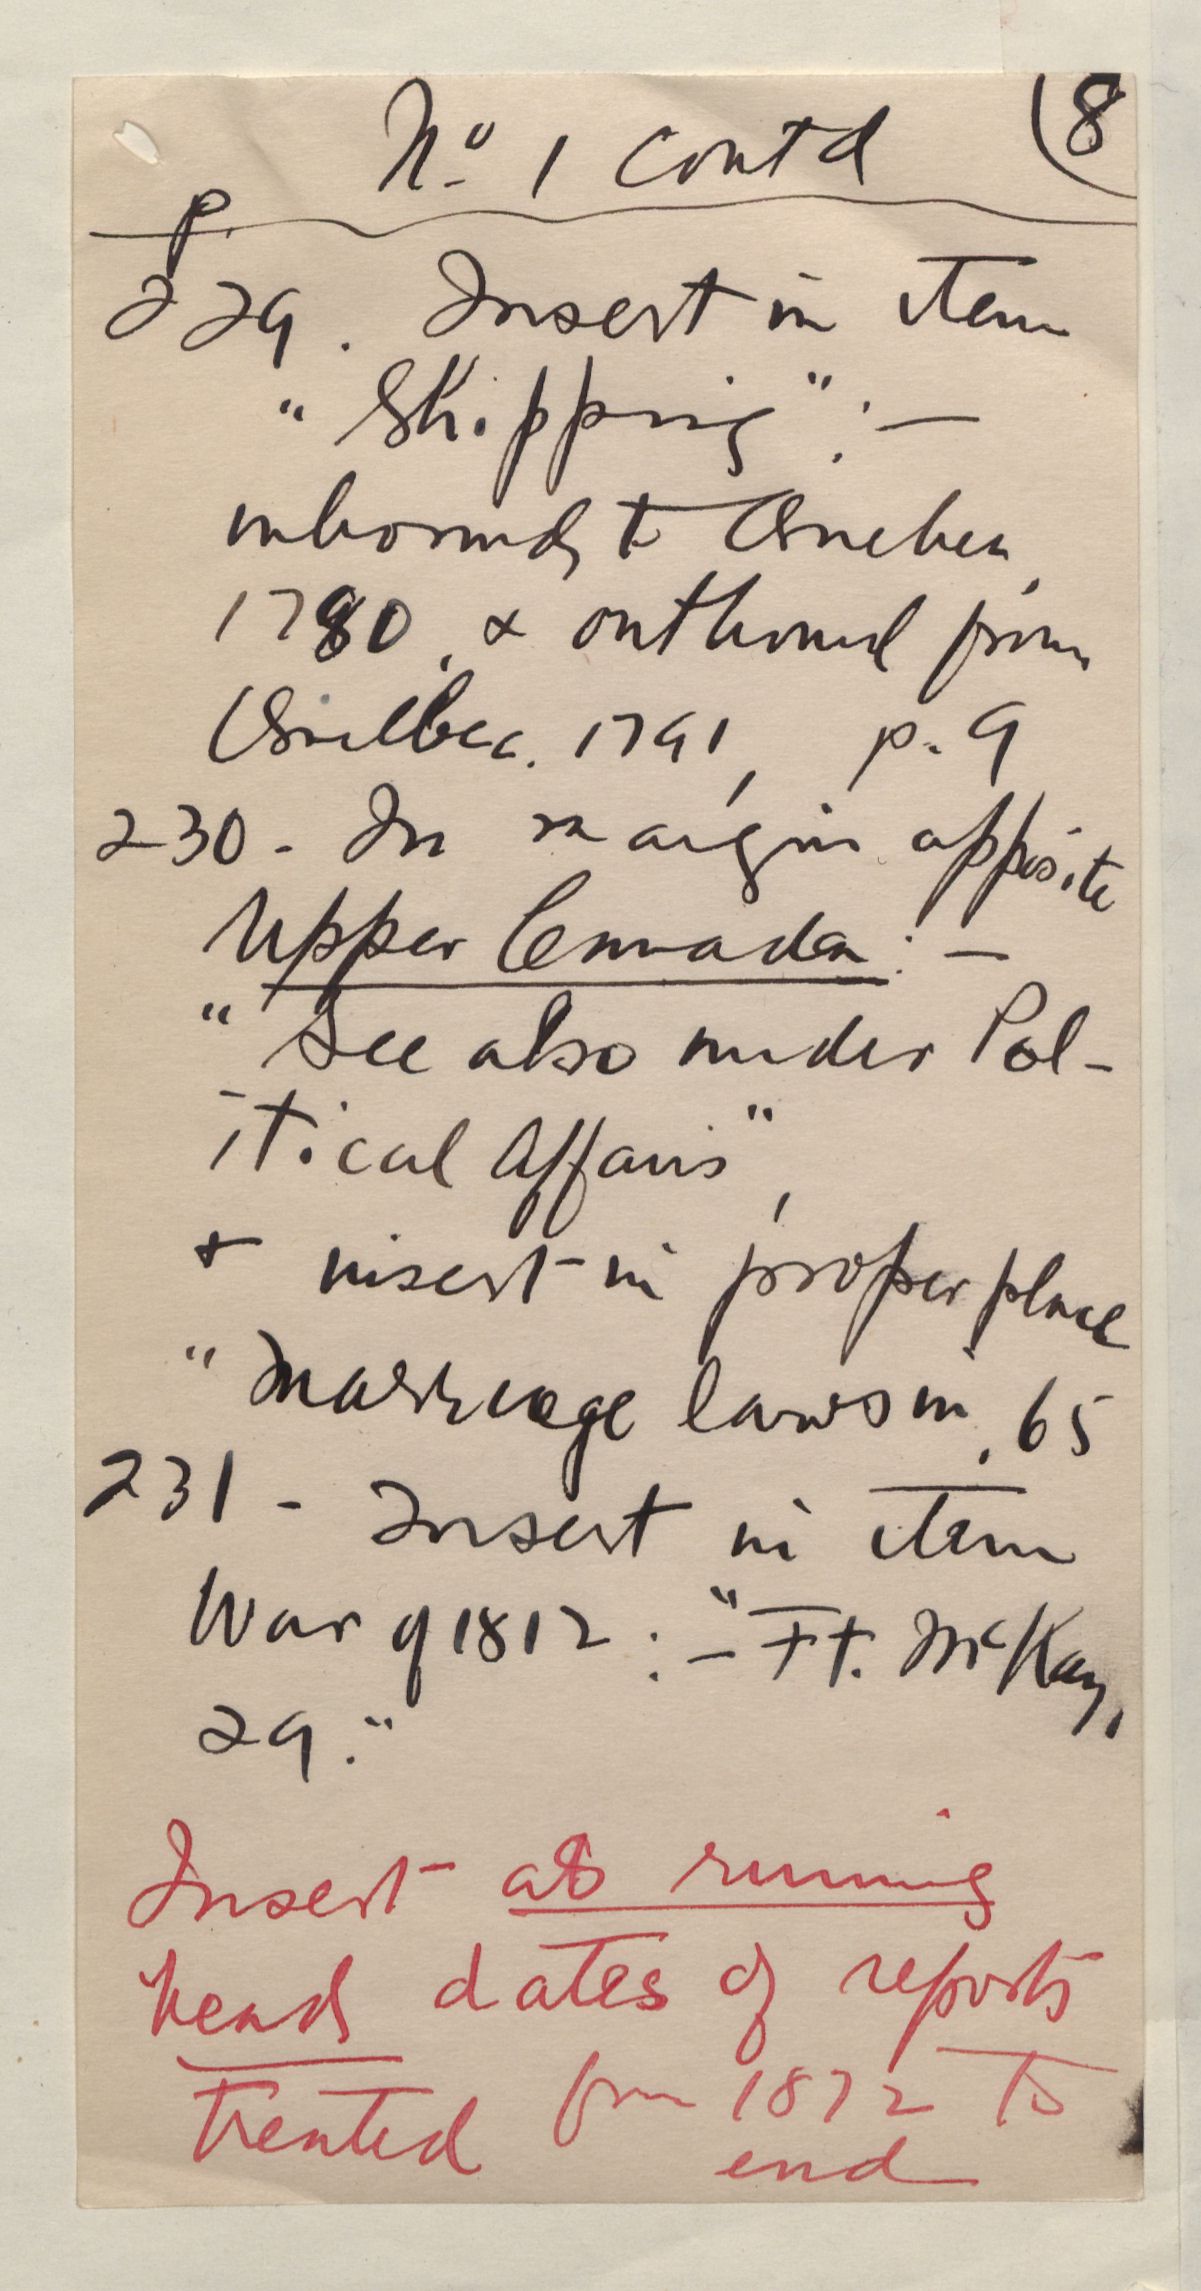 No. 1 contd (8
p.
229. Insert in item
"Shipping":—
inbound to Quebec,
1780, & outbound from
Quebec. 1791, p. 9
230 - In margin opposite
Upper Canada:—
"See also under Pol-
itical Affairs",
& insert in proper place
"Marriage laws in, 65
231 - Insert in item
War of 1812:—"Ft. McKay,
29."
Insert as running
head dates of reports
treated from 1872 to
end